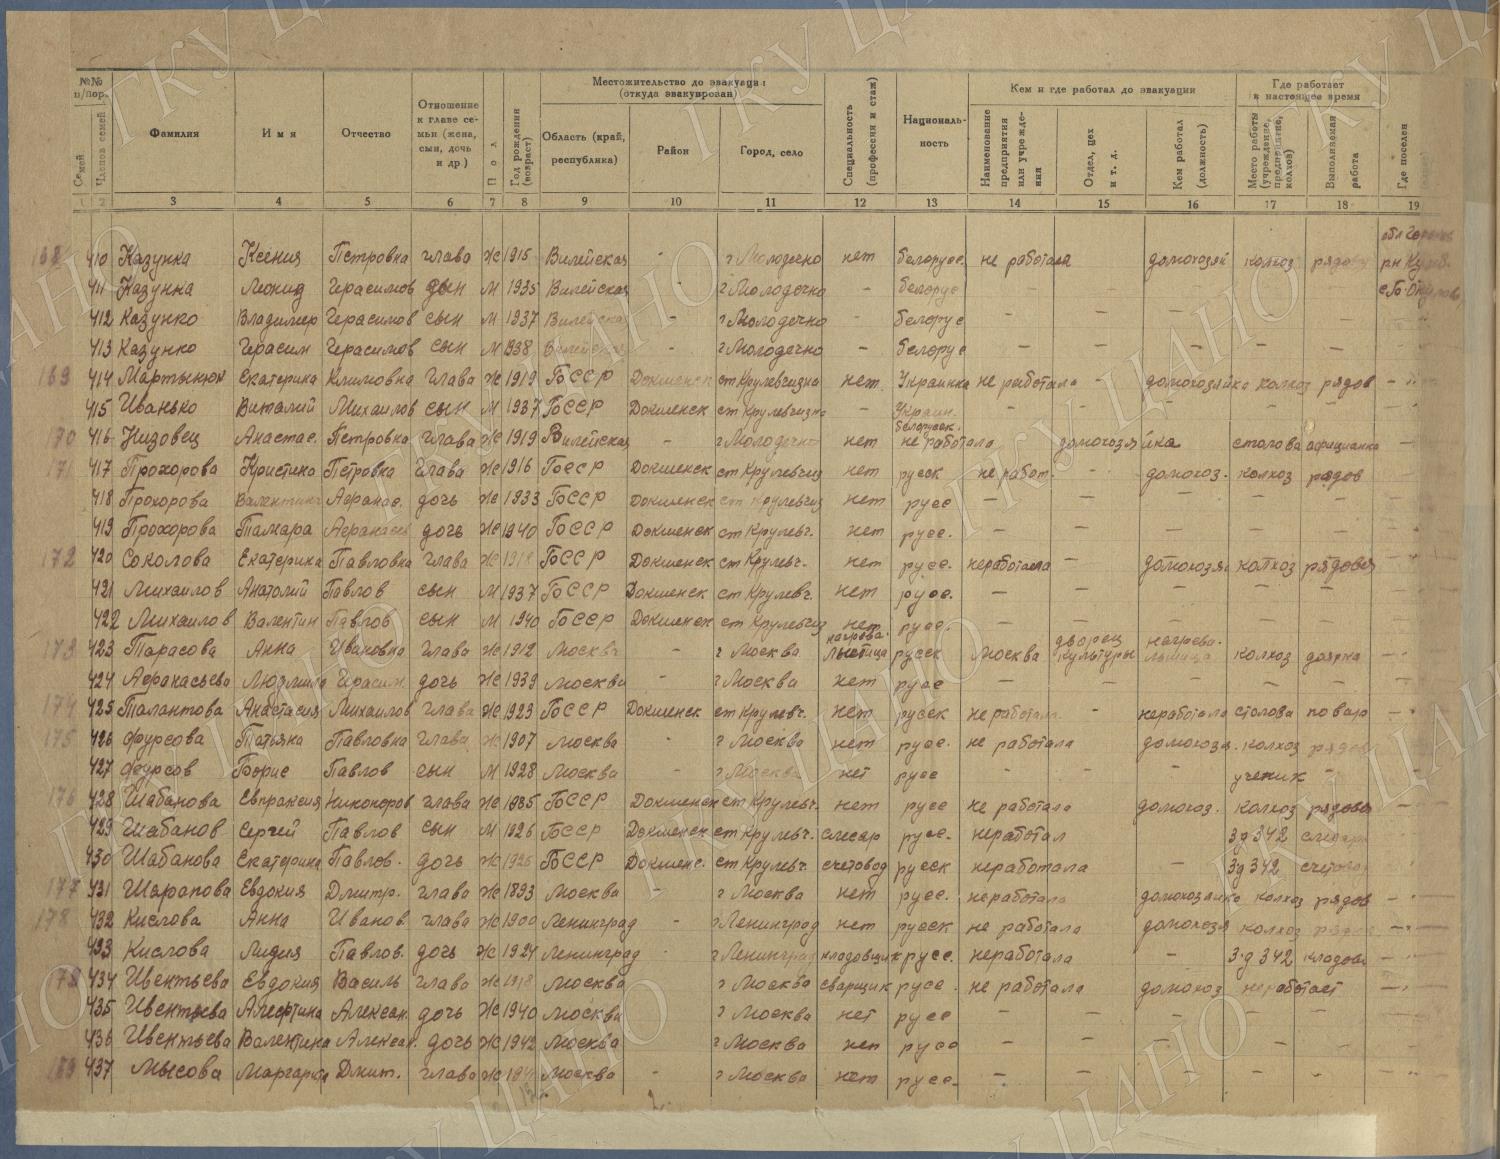 №№ п/пор.
Семей
Членов семей
Фамилия
Имя
Отчество
Отношение к главе семьи (жена, сын, дочь и др.)
Пол
Год рождения (возраст)
Местожительство до эвакуации (откуда эвакуирован)
Область (край, республика)
Район
Город, село
Специальность (профессия и стаж)
Национальность
Кем и где работал до эвакуации
Наименование предприятия или учреждения
Отдел, цех и т. д.
Кем работал (должность)
Где работает в настоящее время
Место работы (учреждение, предприятие, колхоз)
Выполняемая работа
Где поселен
1 2 3 4 5 6 7 8 9 10 11 12 13 14 15 16 17 18 19
168 410 Казунка Ксения Петровна глава Ж 1915 Вилейская - г Молодечно нет белорус. не работала домохозяй колхоз рядову
411 Казунка Леонид Герасимов сын М 1935 Вилейская - г Молодечно - белорус
412 Казунко Владимир Герасимов сын М 1937 Вилейская - г Молодечно - белорус - - - - -
413 Казунко Герасим Герасимов сын М 1938 Вилейская - г Молодечно - белорус - - - - -
169 414 Мартынюк Екатерика Климовна глава Ж 1919 БССР Докшенск ст Крулевчизна нет. Украинка не работала - домохозяйка колхоз рядов -
415 Иванько Виталий Михаилов сын М 1937 БССР Докшенск ст Крулевчизна - Украин. - - - - -
170 416 Низовец Анастас. Петровна глава Ж 1919 Вилейская г Молодечно нет белорусск. не работала домохозяйка столова официанка -
171 417 Прохорова Кристина Петровна глава Ж 1916 БССР Докшенск ст Крулевчиз нет русск не работ. - домохоз. колхоз рядов
418 Прохорова Валентина Афанас. дочь Ж 1933 БССР Докшенск ст Крулевчиз нет русс - - - - -
419 Прохорова Тамара Афанасьев дочь Ж 1940 БССР Докшенск ст Крулевч. нет русс. - - - - -
172 420 Соколова Екатерина Павловна глава Ж 1918 БССР Докшенск ст Крулевч. нет русс. неработала - домохозяй колхоз рядовая
421 Михаилов Анатолий Павлов сын М 1937 БССР Докшенск ст Крулевч. нет русс. - - - - -
422 Михаилов Валентин Павлов сын М 1940 БССР Докшенск ст Крулевчиз нет русс. - - - - -
173 423 Тарасова Анна Ивановна глава Ж 1912 Москва - г Москва русск Москва дворец культуры колхоз доярка
424 Афанасьева Людмила Герасим. дочь Ж 1939 Москва - г Москва нет русс - - - - -
174 425 Талантова Анастасия Михаилов глава Ж 1923 БССР Докшенск ст Крулевч. нет русск не работала - неработала столова повара
175 426 Фурсова Татьяна Павловна глава Ж 1907 Москва - г Москва нет русс. не работала домохозя. колхоз рядов
427 Фурсов Борис Павлов сын М 1928 Москва - г Москва нет русс - - - ученик -
176 428 Шабанова Евпраксия Никоноров глава Ж 1885 БССР Докшенск ст Крулевч. нет русс не работала домохоз. колхоз рядова
429 Шабанов Сергей Павлов сын М 1926 БССР Докшенск ст Крулевч. слесар русс. неработал 3д 342 слесарь
430 Шабанова Екатерина Павлов. дочь Ж 1925 БССР Докшенс. ст Крулевч. счетовод русск неработала - 3д 342 счетовод
177 431 Шарапова Евдокия Дмитр. глава Ж 1893 Москва - г Москва нет русс. неработала домохозяйка колхоз рядов -
178 432 Кислова Анна Иванов. глава Ж 1900 Ленинград - г Ленинград нет русск не работала домохозя колхоз рядов
433 Кислова Лидия Павлов. дочь Ж 1924 Ленинград - г Ленинград кладовщик русс. неработала - 3д 342 кладов
434 Ивентьева Евдокия Василь глава Ж 1918 Москва г Москва сварщик русс. не работала домохоз неработает
435 Ивентьева Алефтина Алексан. дочь Ж 1940 Москва г Москва нет русс - - - - -
436 Ивентьева Валентина Алексан. дочь Ж 1942 Москва г Москва нет русс - - - - -
437 Мысова Маргарита Дмит. глава Ж Москва - г Москва нет русс. - - - - -
ГКУ ЦАНО